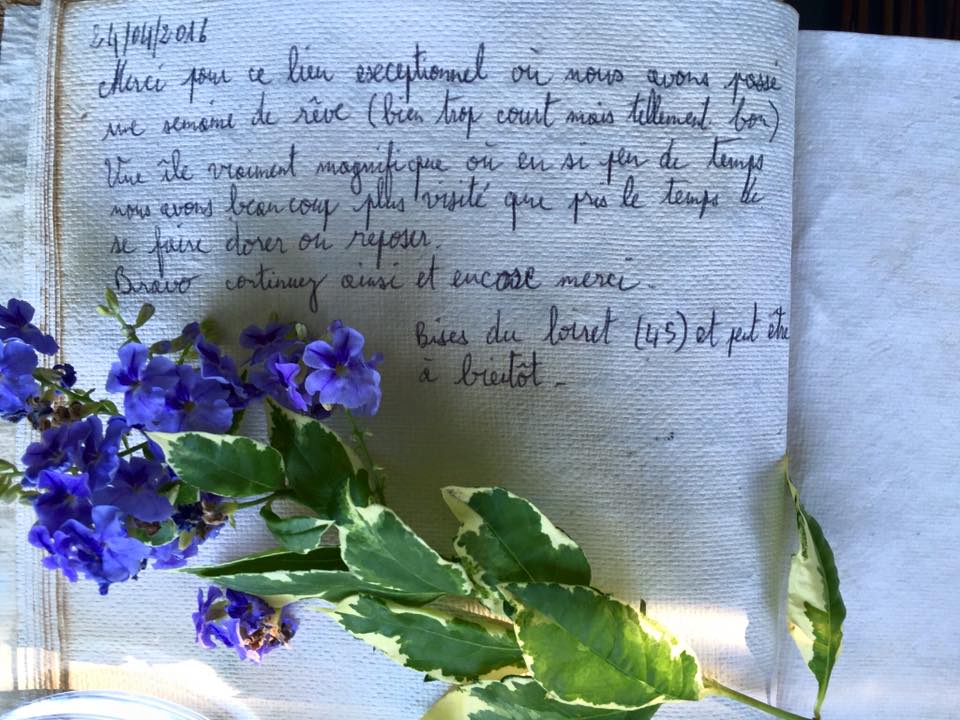 24/04/2016
Merci pour ce lieu exceptionnel où nous avons passé
une semaine de rêve (bien trop court mais tellement bon)
Une île vraiment magnifique où en si peu de temps
nous avons beaucoup plus visité que pris le temps de
se faire dorer ou reposer.
Bravo continuez ainsi et encore merci.
Bises du loiret (45) et peut être
à bientôt.